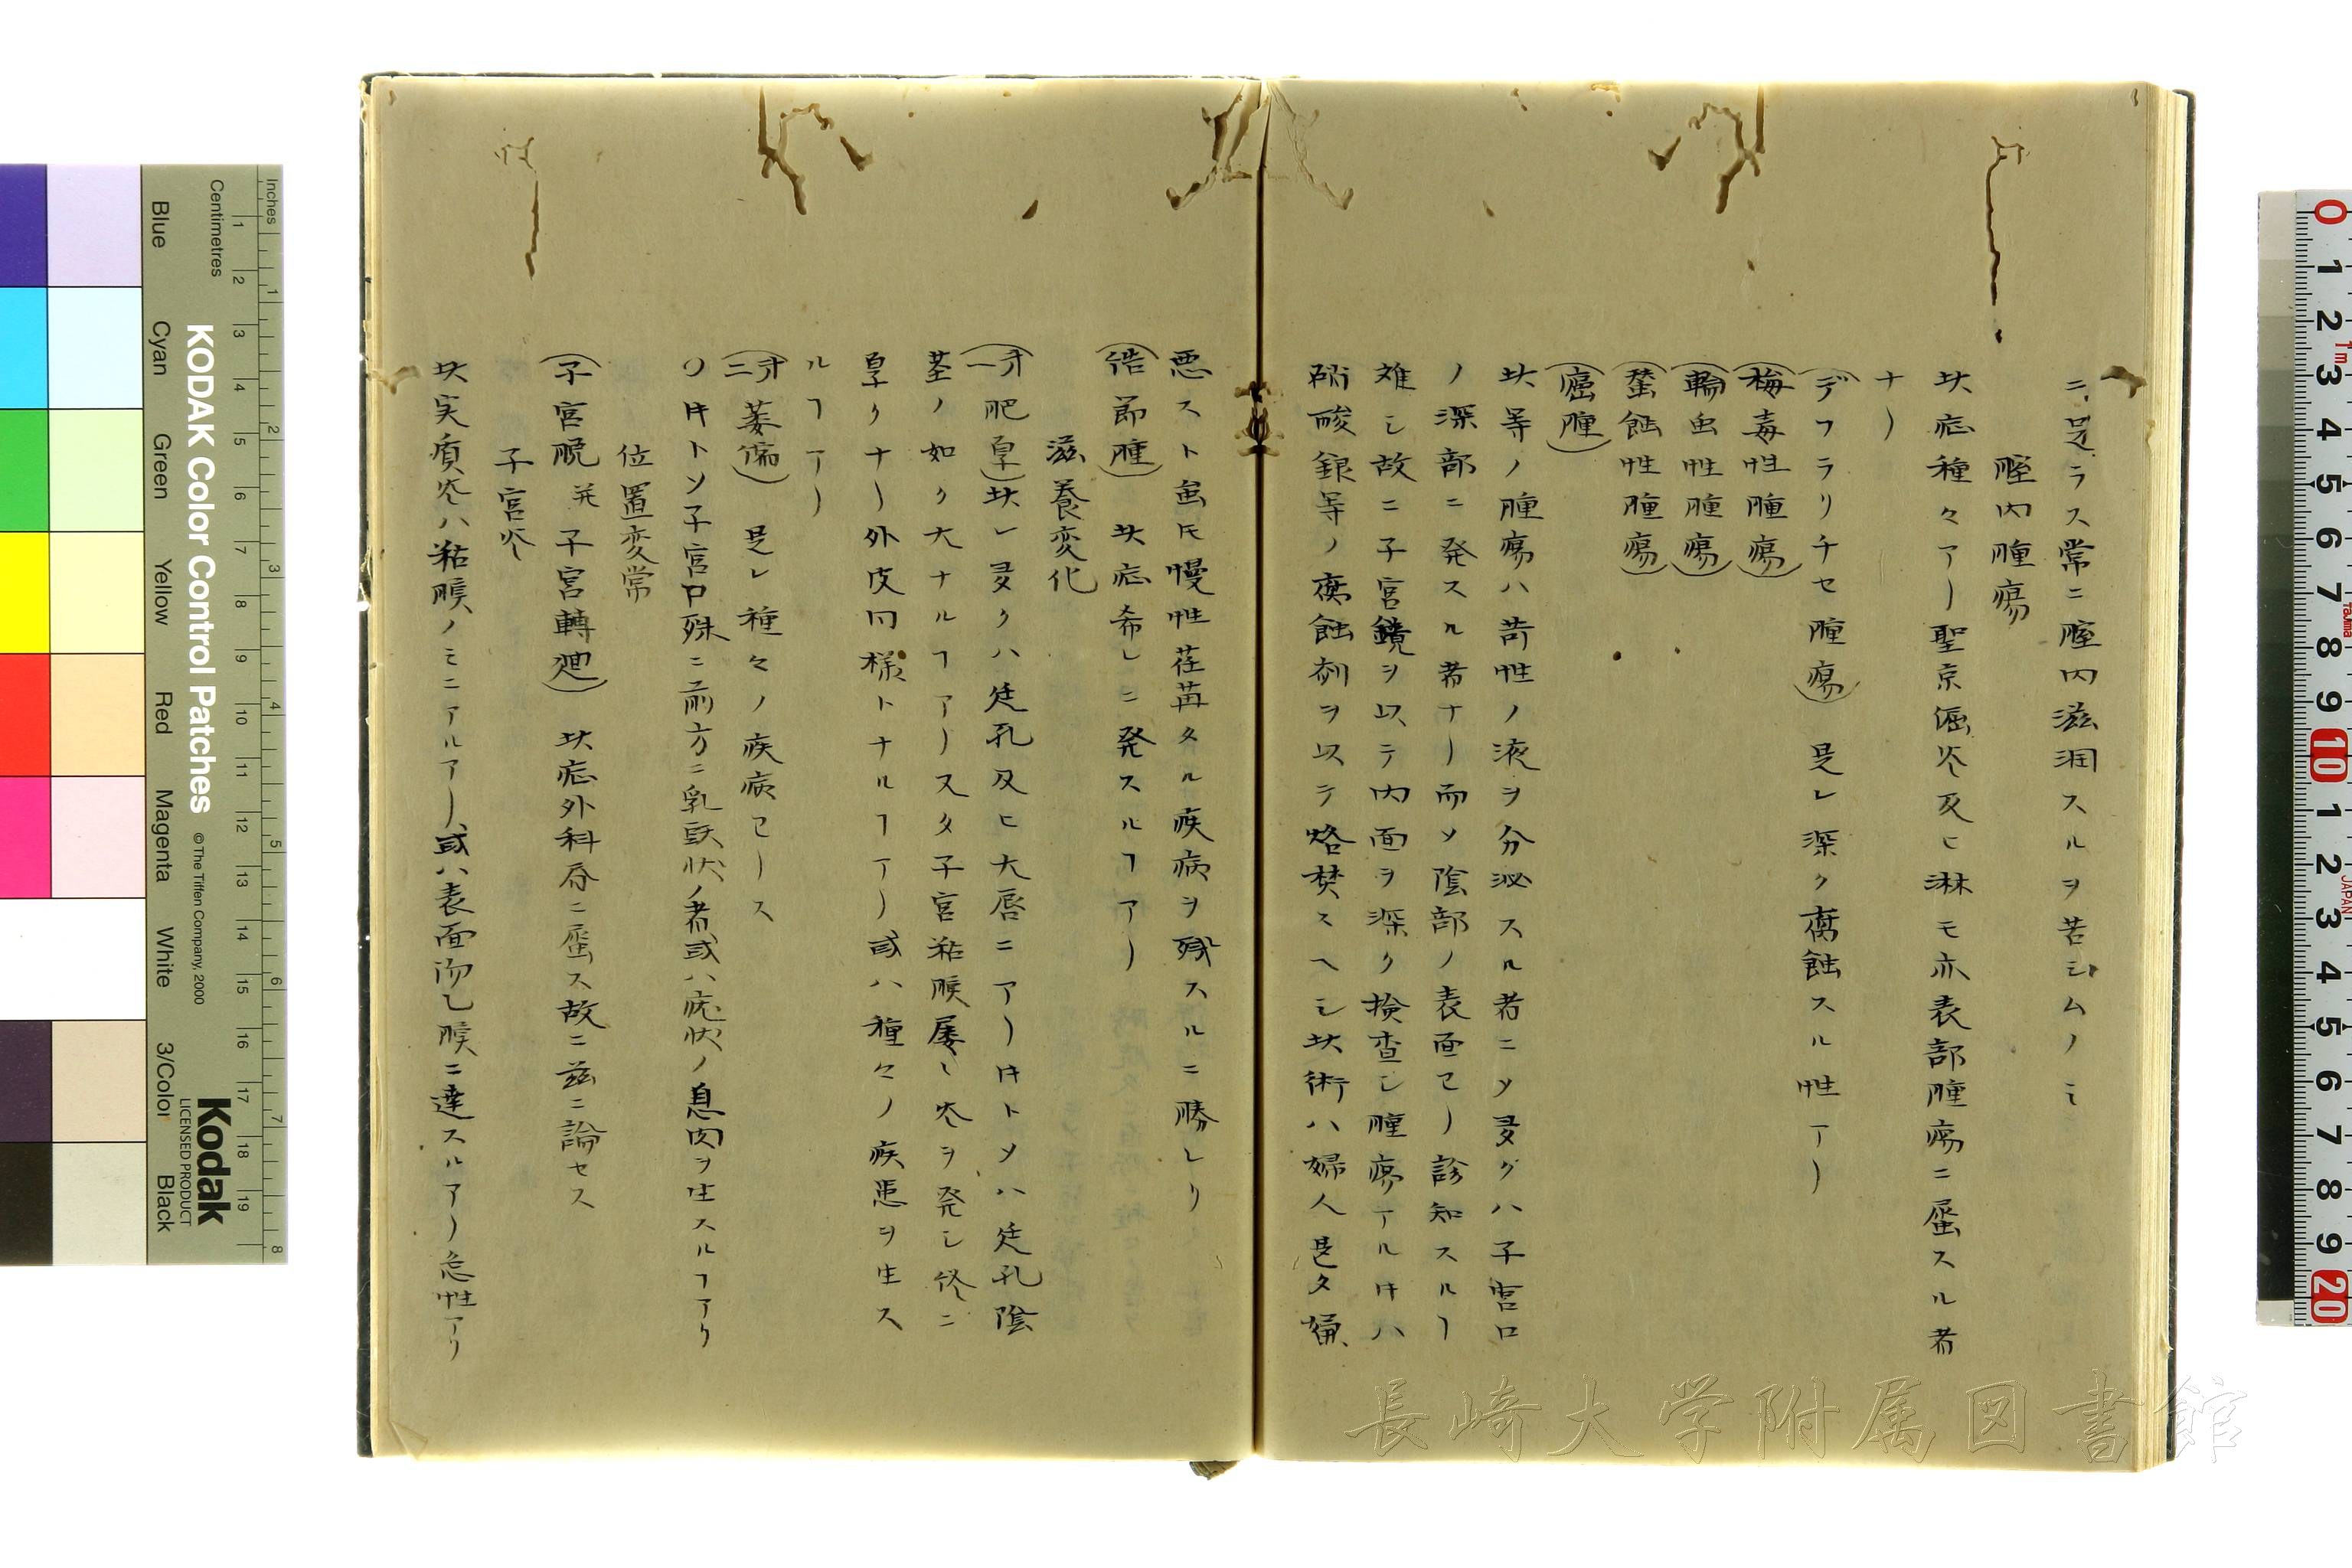 ニ足ラス常ニ膣内滋潤スルヲ苦シムノミ
膣内腫瘍
此症種々アリ聖京倔炎及ヒ淋モ亦表部腫瘍ニ属スル者
ナリ
(デフラリチセ腫瘍) 是レ深ク腐蝕スル性アリ
(梅毒性腫瘍)
(輪虫性腫瘍)
(蝥蝕性腫瘍)
(癌腫)
此等ノ腫瘍ハ苛性ノ液ヲ分泌スル者ニソ多クハ子宮口
ノ深部ニ発スル者ナリ而ソ陰部ノ表面ヨリ診知スルヿ
難シ故ニ子宮鏡ヲ以テ内面ヲ深ク検査シ腫瘍アル片ハ
硝酸銀等ノ腐蝕剤ヲ以テ烙焚スヘシ此術ハ婦人是タ
悪スト虽𪜈慢性荏苒タル疾病ヲ残スルニ勝レリ
(結節腫) 此症希レニ発スルヿアリ
滋養変化
(才一肥厚)此レ多クハ廷孔及ヒ大唇ニアリ片トソハ廷孔陰
茎ノ如ク大ナルヿアリ又タ子宮粘膜屡々炎ヲ発シ終ニ
厚クナリ外皮同様トナルヿアリ或ハ種々ノ疾患ヲ生ス
ルヿアリ
(才二萎縮) 是レ種々ノ疾病ヨリス
〇片トソ子宮口殊ニ前方ニ乳頭状ノ者或ハ疣状ノ息肉ヲ生スルヿアリ
位置変常
(子宮脱并子宮轉廻) 此症外科存ニ属ス故ニ茲ニ論セス
子宮炎
此実質炎ハ粘膜ノミニアルアリ或ハ表面沏乙膜ニ達スルアリ急性アリ
KODAK Color Control Patches
© The Tiffen Company, 2000
Kodak
LICENSED PRODUCT
Inches
Centimetres
Blue
Cyan
Green
Yellow
Red
Magenta
White
3/Color
Black
長崎大学附属図書館